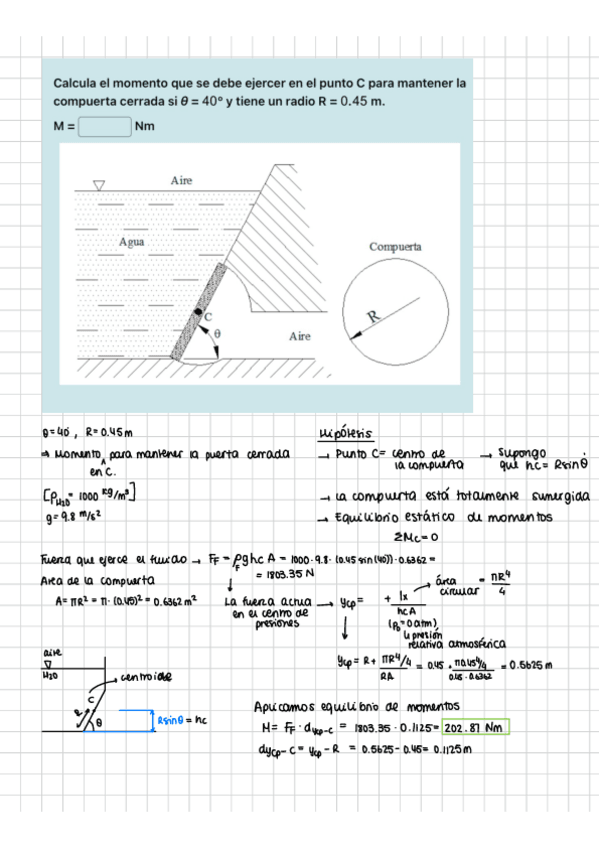 Calcula el momento que se debe ejercer en el punto C para mantener la
compuerta cerrada si θ = 40º y tiene un radio R = 0.45 m.
M = Nm
Aire
Agua
Compuerta
C
θ
R
Aire
θ=40, R=0.45m
→ Momento para mantener la puerta cerrada
en C.
[ρH₂O = 1000 kg/m³]
g = 9.8 m/s²
Hipótesis
→ Punto C = centro de la compuerta → Supongo que hc = Rsinθ
→ La compuerta está totalmente sumergida
→ Equilibrio estático de momentos
ΣMc=0
Fuerza que ejerce el fluido → FF = ρghc A = 1000·9.8·(0.45 sin(40))·0.6362 =
= 1803.35 N
Area de la compuerta
A = πR² = π·(0.45)² = 0.6362 m²
La fuerza actua en el centro de presiones → ycp = + Ix / hcA
área circular = πR⁴/4
(P₀ = 0 atm)
↳ presión relativa atmosférica
ycp = R + πR⁴/4 / RA = 0.45 · π0.45⁴/4 / 0.45·0.6362 = 0.5625 m
aire
H₂O
centroide
C
R
θ
Rsinθ = hc
Aplicamos equilibrio de momentos
M = FF · dycp-c = 1803.35 · 0.1125 = 202.87 Nm
dycp-c = ycp - R = 0.5625 - 0.45 = 0.1125 m